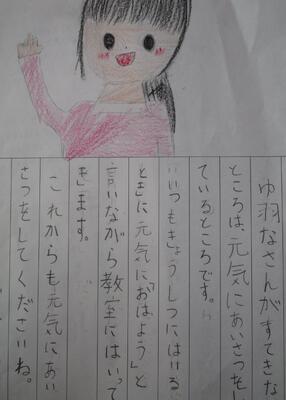 ゆ羽なさんがすてきな
ところは、元気にあいさつをし
ているところです。
いつもきょうしつにはいる
ときに元気に「おはよう」と
言いながら教室にはいって
きます。
これからも元気にあい
さつをしてくださいね。